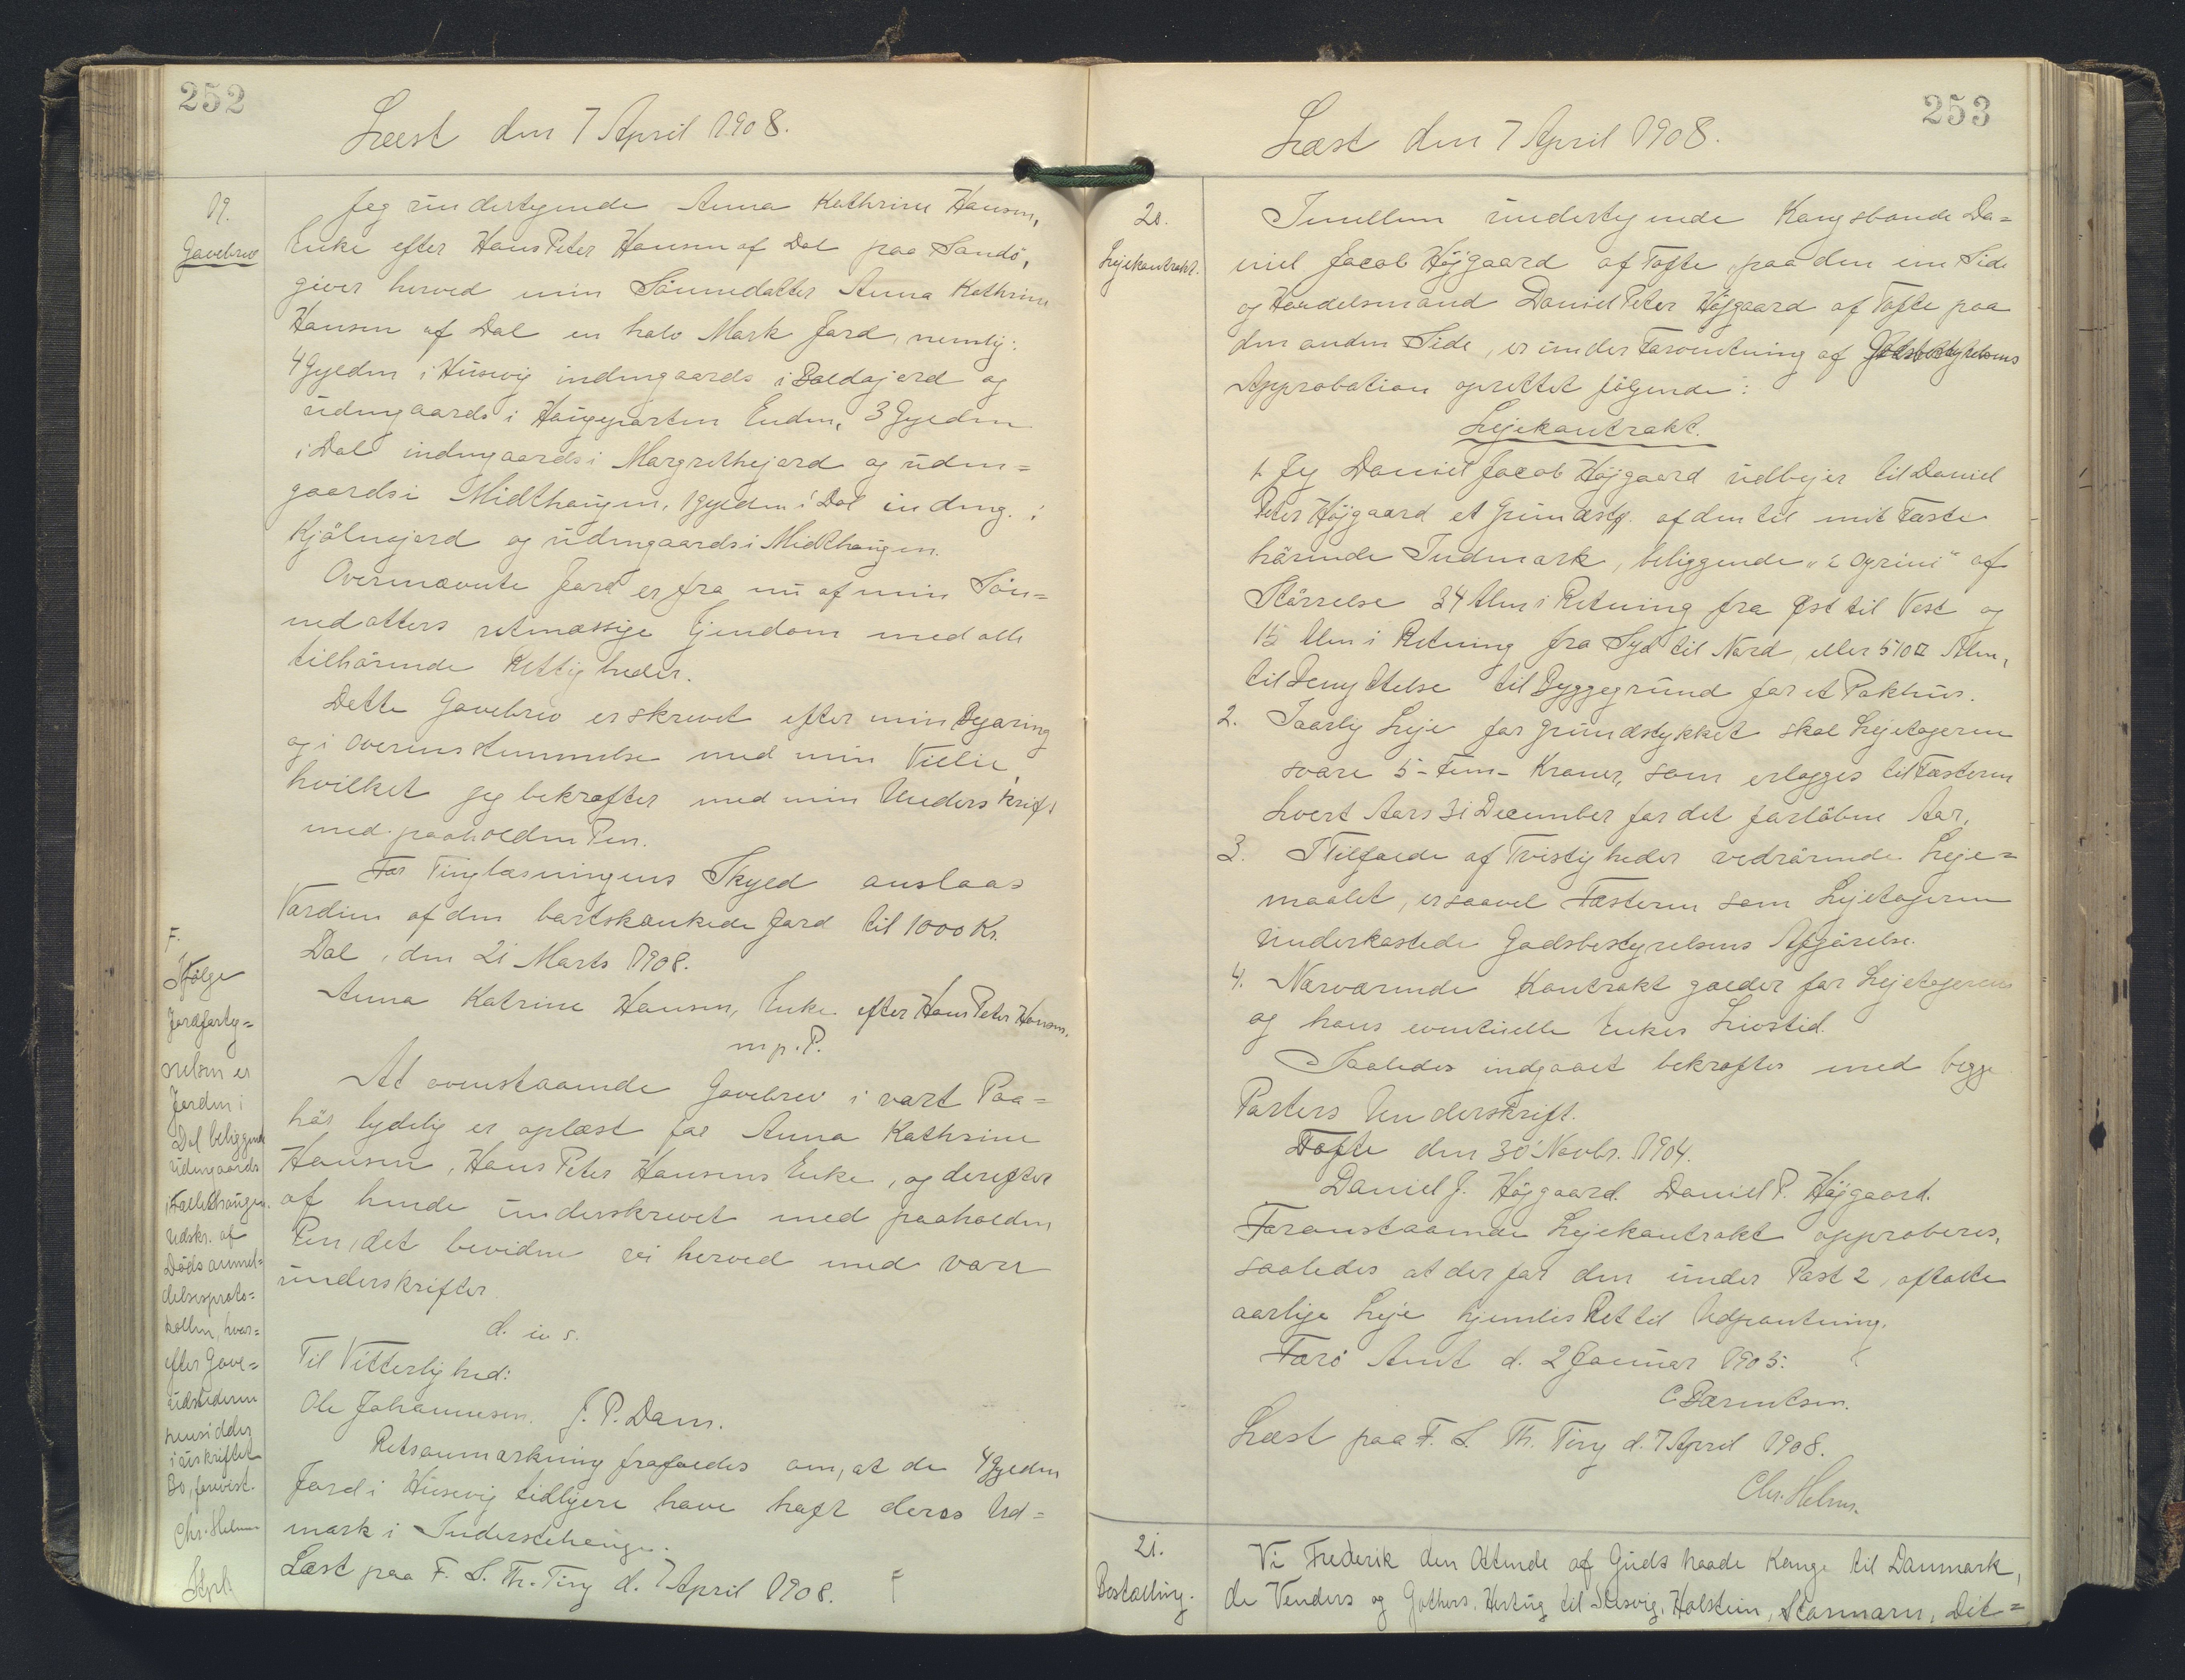 252
Læst den 7 April 1908.
19.
Gavebrev
Jeg undertegnede Anna Kathrine Hansen,
Enke efter Hans Peter Hansen af Dal paa Sandö,
giver herved min Sönnedatter Anna Kathrine
Hansen af Dal en halv Mark Jord, nemlig:
4 Gylden i Husevig indengaards i Baldajord og
udengaards i Haugeparten Enden, 3 Gylden
i Dal indengaards i Margrethejord og uden=
gaards i Midthaugen, 1 Gylden i Dal indeng. i
Kjölnajord og udengaards i Midthaugen.
Overnævnte Jord er fra nu af min Sön=
nedatters retmæssige Ejendom med alle
tilhörende Rettigheder.
Dette Gavebrev er skrevet efter min Begæring
og i Overensstemmelse med min Villie,
hvilket jeg bekræfter med min Underskrift
med paaholden Pen.
For Tinglæsningens Skyld anslaas
Værdien af den bortskænkede Jord til 1000 Kr.
Dal, den 21 Marts 1908.
Anna Katrine Hansen, Enke efter Hans Peter Hansen.
m. p. P.
At ovenstaaende Gavebrev i vort Paa=
hör lydelig er oplæst for Anna Kathrine
Hansen, Hans Peter Hansens Enke, og derefter
af hende underskrevet med paaholden
Pen, det bevidne vi herved med vore
underskrifter.
d. u. s.
Til Vitterlighed:
Ole Johannesen. J. P. Dam.
Retsanmærkning frafaldes om, at de 4 Gylden
Jord i Husevig tidligere have haft deres Ud=
mark i
Læst paa F. S. Th. Ting d. 7 April 1908. F
F.
Ifölge
Jordforteg=
nelsen er
Jorden i
Dal beliggende
udengaards
i
Udskr. af
Dödsanmel=
delsesproto=
kollen, hvor=
efter Gave=
udstederen
hensidder
i uskiftet
Bo, forevist.
Chr. Helms
253
Læst den 7 April 1908.
20.
Lejekontrakt.
Imellem undertegnede Kongsbonde Da=
niel Jacob Højgaard af Tofte paa den ene Side
og Handelsmand Daniel Peter Højgaard af Tofte paa
den anden Side, er under Forventning af Godsbestyrelsens
Approbation oprettet fölgende:
Lejekontrakt.
1. Jeg Daniel Jacob Højgaard udlejer til Daniel
Peter Højgaard et Grundstk. af den til mit Fæste
hörende Indmark, beliggende "i Ogrini" af
Störrelse 34 Alen i Retning fra Øst til Vest og
15 Alen i Retning fra Syd til Nord, eller 510 □ Alen,
til Benyttelse til Byggegrund for et Pakhus.
2. Iaarlig Leje for Grundstykket skal Lejetageren
svare 5 - fem - Kroner, som erlægges til Fæsteren
hvert Aars 31 December for det forlöbne Aar.
3. I Tilfælde af Tvistigheder vedrörende Leje=
maalet, er saavel Fæsteren som Lejetageren
underkastede Godsbestyrelsens Afgörelse.
4. Nærværende Kontrakt gælder for Lejetageren
og hans eventuelle Enkes Livstid.
Saaledes indgaaet bekræftes med begge
Parters Underskrift.
Tofte den 30' Novbr. 1904.
Daniel J. Højgaard. Daniel P. Højgaard.
Foranstaaende Lejekontrakt approberes,
saaledes at der for den under Post 2, aftalte
aarlige Leje hjemles Ret til Udpantning.
Færö Amt d. 2 Januar 1905.
C. Bærentsen.
Læst paa F. S. Th. Ting d. 7 April 1908.
Chr. Helms.
21.
Bestalling.
Vi Frederik den Ottende af Guds Naade Konge til Danmark,
de Venders og Gothers, Hertug til Slesvig, Holsten, Stormarn, Dit=